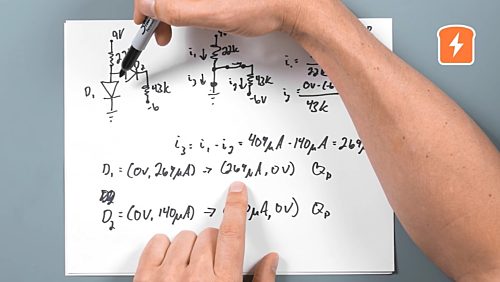 9V
22k
D₂
D₁
43k
-6
i₁
22k
i₃
i₂
43k
-6V
i₁ =
22k
i₂ = 0V-(-6
43k
i₃ = i₁ - i₂ = 409μA - 140μA = 269μ
D₁ = (0V, 269μA) → (269μA, 0V) Qp
D₂ = (0V, 140μA) → μA, 0V) Qp